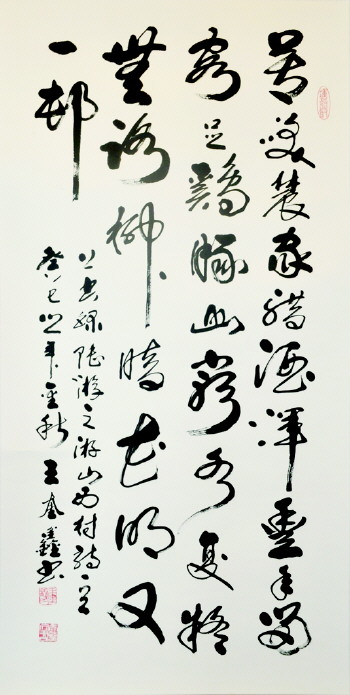 莫咲農家腊酒渾豐年留
客足鷄豚山窮水复疑
無路柳暗花明又
一邨
以書錄陸游之游山西村詩一首
癸巳之年金秋 王奎鑫書